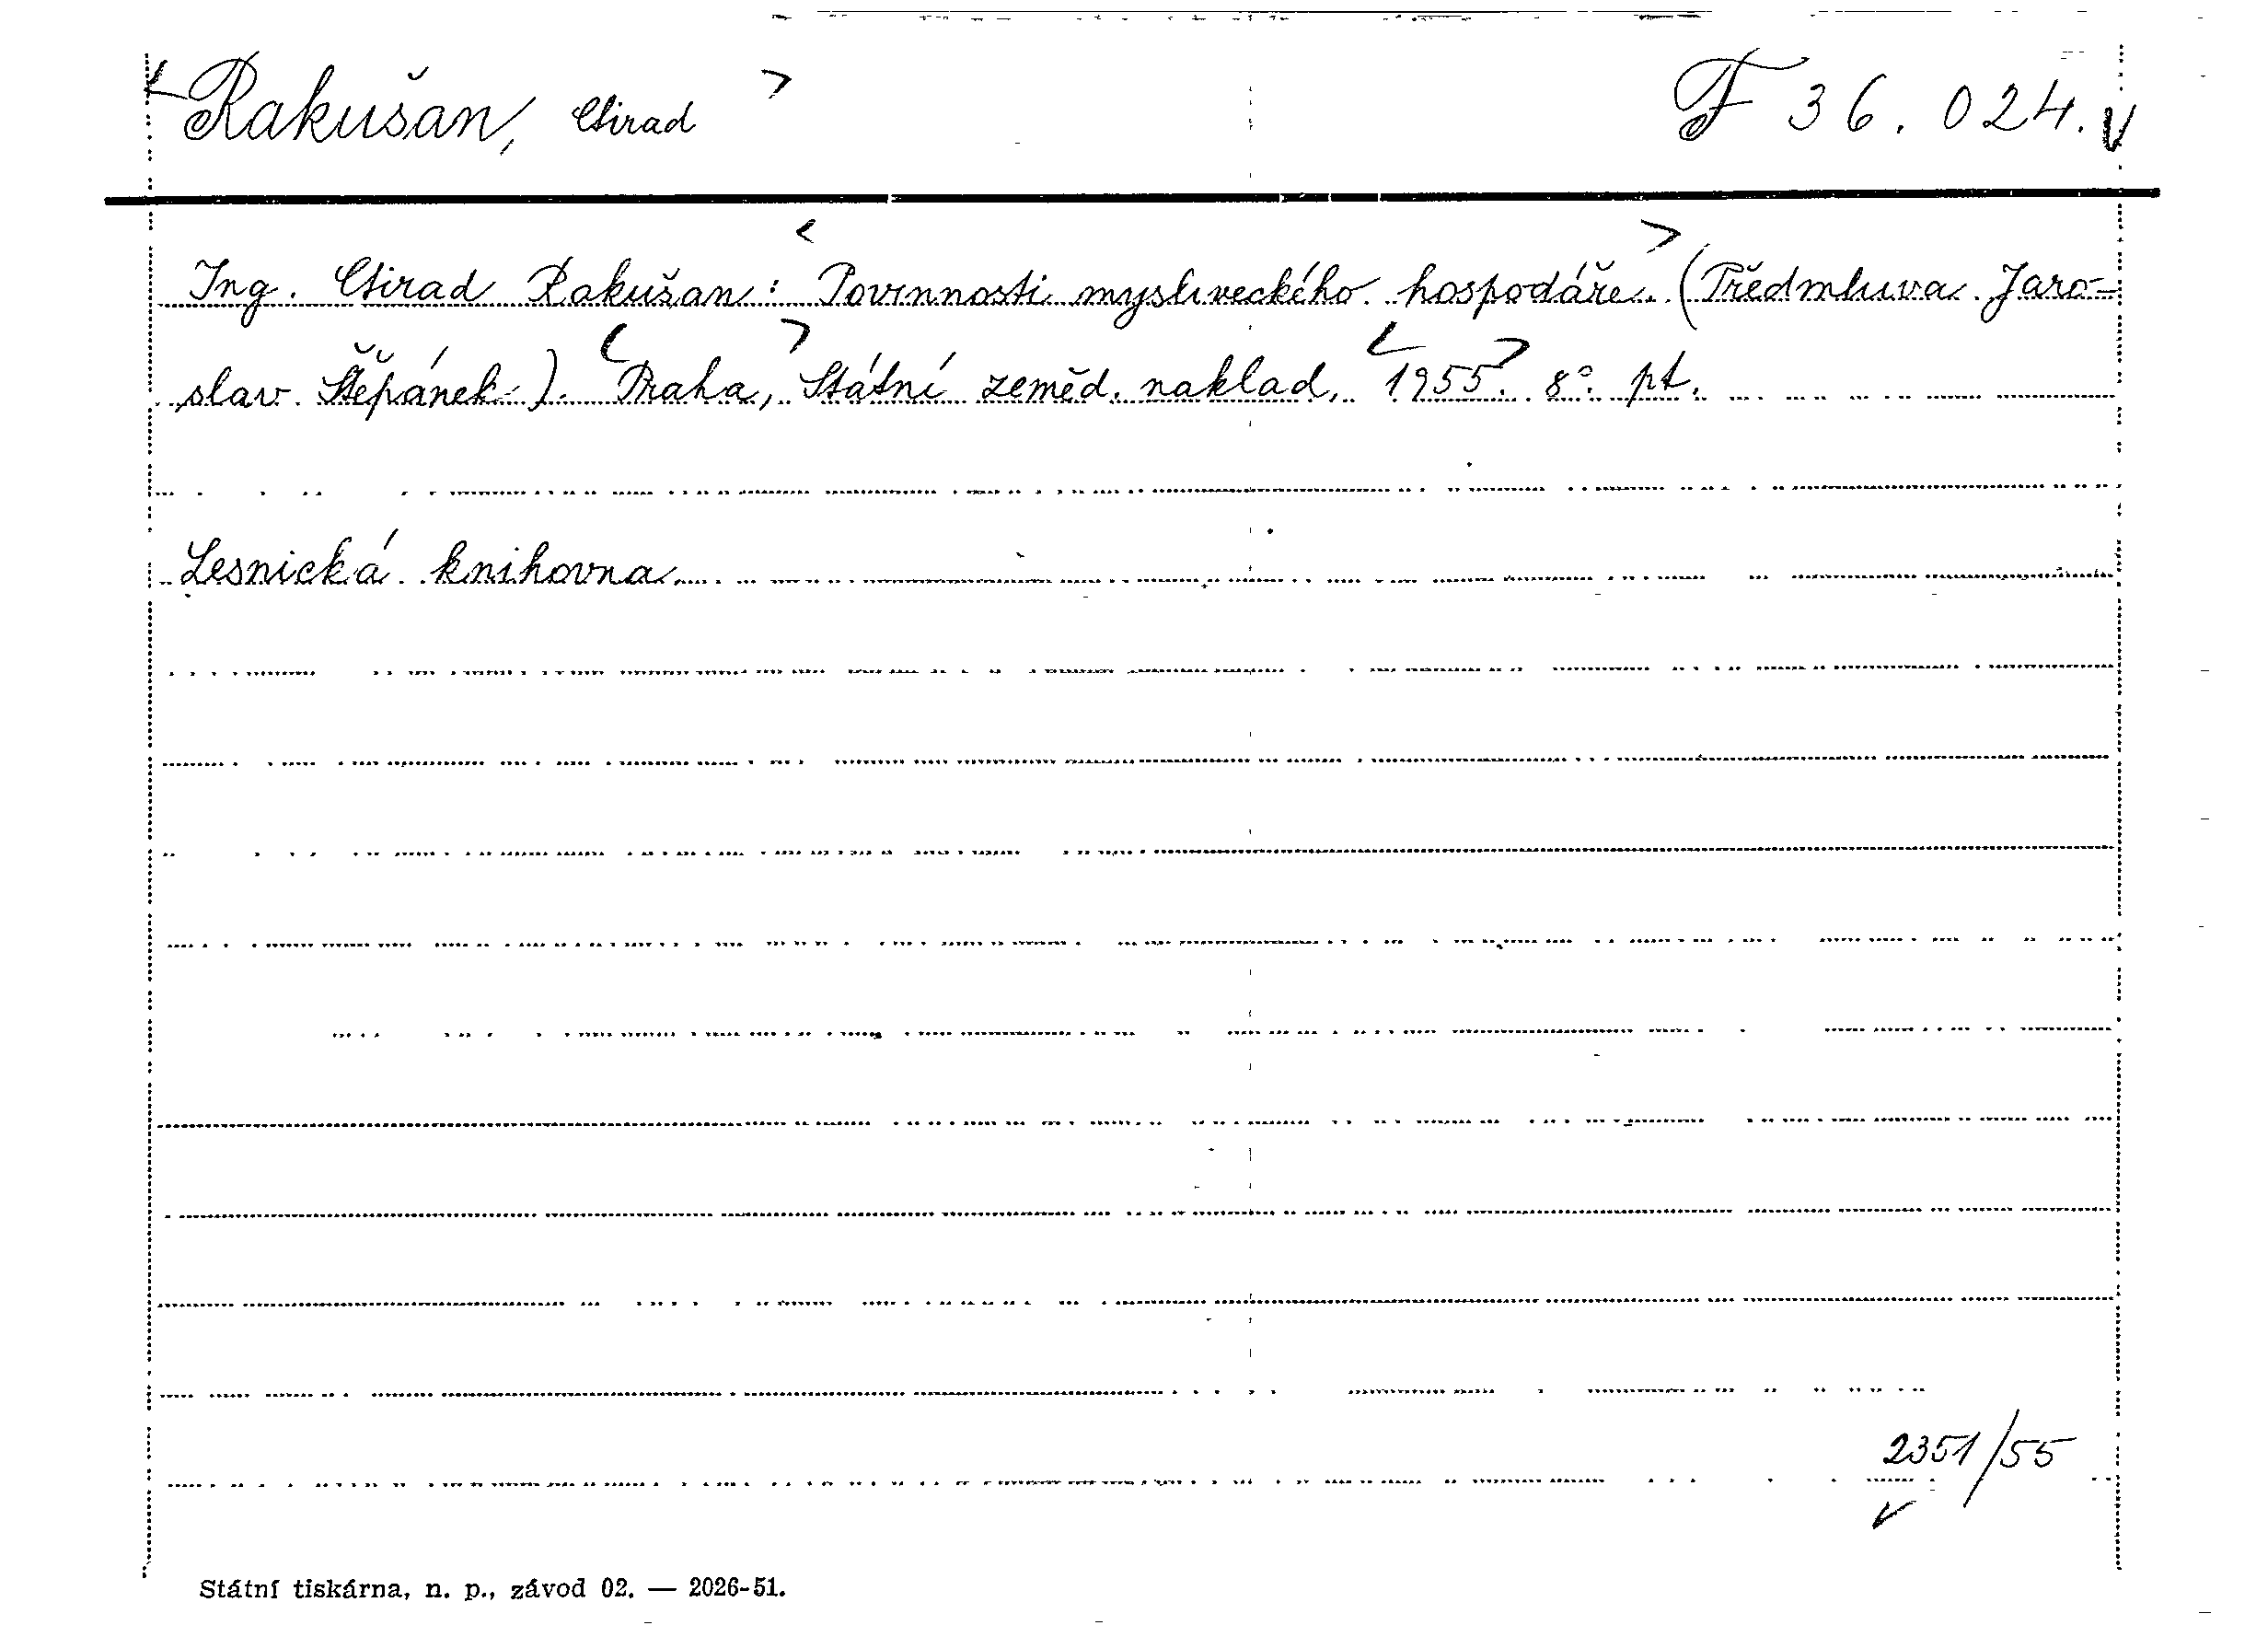 Rakušan, Ctirad F 36.024.
Ing. Ctirad Rakušan: Povinnosti mysliveckého hospodáře. (Předmluva Jaro-
slav Štěpánek). Praha, Státní zeměd. naklad. 1955. 8°. pt.
Lesnická knihovna.
2351/55
Státní tiskárna, n. p., závod 02. — 2026-51.